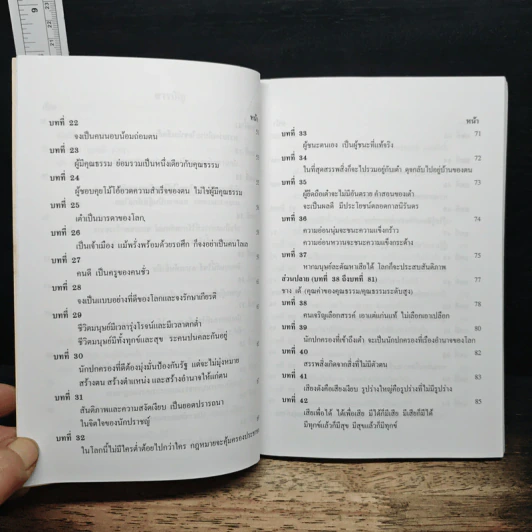 บทที่ 22
จงเป็นคนนอบน้อมถ่อมตน
บทที่ 23
ผู้มีคุณธรรม ย่อมรวมเป็นหนึ่งเดียวกับคุณธรรม
บทที่ 24
ผู้ชอบคุยโม้โอ้อวดความสำเร็จของตน ไม่ใช่ผู้มีคุณธรรม
บทที่ 25
เต๋าเป็นมารดาของโลก,
บทที่ 26
เป็นเจ้าเมือง แม้พรั่งพร้อมด้วยรถศึก ก็จงอย่าเป็นคนโลเล
บทที่ 27
คนดี เป็นครูของคนชั่ว
บทที่ 28
จงเป็นแบบอย่างที่ดีของโลกและจงรักษาเกียรติ
บทที่ 29
ชีวิตมนุษย์มีเวลารุ่งโรจน์และมีเวลาตกต่ำ
ชีวิตมนุษย์มีทั้งทุกข์และสุข ระคนปนคละกันอยู่
บทที่ 30
นักปกครองที่ดีต้องมุ่งมั่นป้องกันรัฐ แต่จะไม่มุ่งหมาย
สร้างตน สร้างตำแหน่ง และสร้างอำนาจให้แก่ตน
บทที่ 31
สันติภาพและความสงัดเงียบ เป็นยอดปรารถนา
ในจิตใจของนักปราชญ์
บทที่ 32
ในโลกนี้ไม่มีใครต่ำต้อยไปกว่าใคร กฎหมายจะคุ้มครอง
หน้า
บทที่ 33 71
ผู้ชนะตนเอง เป็นผู้ชนะที่แท้จริง
บทที่ 34 72
ในที่สุดสรรพสิ่งก็จะไปรวมอยู่กับเต๋า ดุจกลับไปอยู่บ้านของตน
บทที่ 35 73
ผู้ยึดถือเต๋าจะไม่มีอันตราย คำสอนของเต๋า
จะเป็นผลดี มีประโยชน์ตลอดกาลนิรันดร
บทที่ 36 74
ความอ่อนนุ่มจะชนะความแข็งกร้าว
ความอ่อนหวานจะชนะความแข็งกระด้าง
บทที่ 37
หากมนุษย์ละตัณหาเสียได้ โลกก็จะประสบสันติภาพ
ส่วนปลาย (บทที่ 38 ถึงบทที่ 81) 77
ชาง เต๋ (คุณค่าของคุณธรรม/คุณธรรมระดับสูง)
บทที่ 38 78
คนเจริญเลือกสรรค์ เอาแต่แก่นแท้ ไม่เลือกเอาเปลือก
บทที่ 39 80
นักปกครองที่เข้าถึงเต๋า จะเป็นนักปกครองที่เรืองอำนาจของโลก
บทที่ 40 82
สรรพสิ่งเกิดจากสิ่งที่ไม่มีตัวตน
บทที่ 41 83
เสียงดังคือเสียงเงียบ รูปร่างใหญ่คือรูปร่างที่ไม่มีรูปร่าง
บทที่ 42 85
เสียเพื่อได้ ได้เพื่อเสีย มีได้ก็มีเสีย มีเสียก็มีได้
มีทุกข์แล้วก็มีสุข มีสุขแล้วก็มีทุกข์